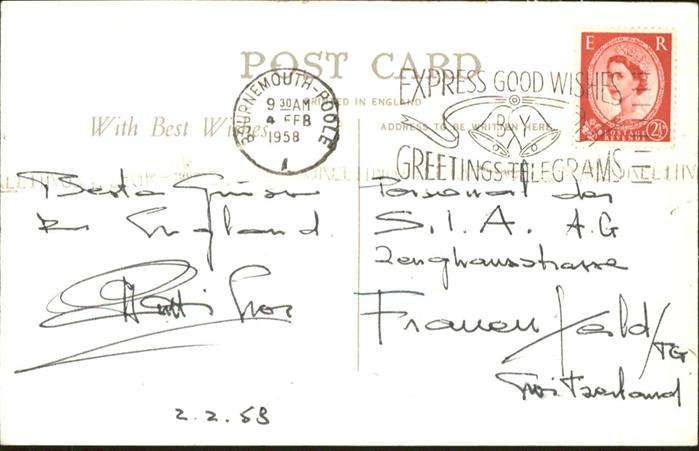 POST CARD
PRINTED IN ENGLAND
With Best Wishes
ADDRESS TO BE WRITTEN HERE
BOURNEMOUTH-POOLE
9 30 AM
4 FEB
1958
1
EXPRESS GOOD WISHES
BY
GREETINGS TELEGRAMS
E R
2½
Beste Grüsse
England
2.2.58
Personal der
S.I.A. A.G
Zeughausstrasse
Frauenfeld/TG
Switzerland